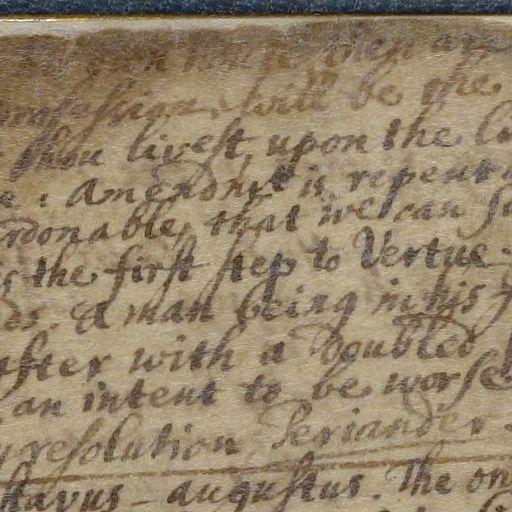 then are
will be the
thou livest, upon the
Amendmt is repent
rdonable, that we can
the first step to Vertue
A man being in his
after with a Doubled
an intent to be worse
resolution, Periander
tavus - augustus. The on